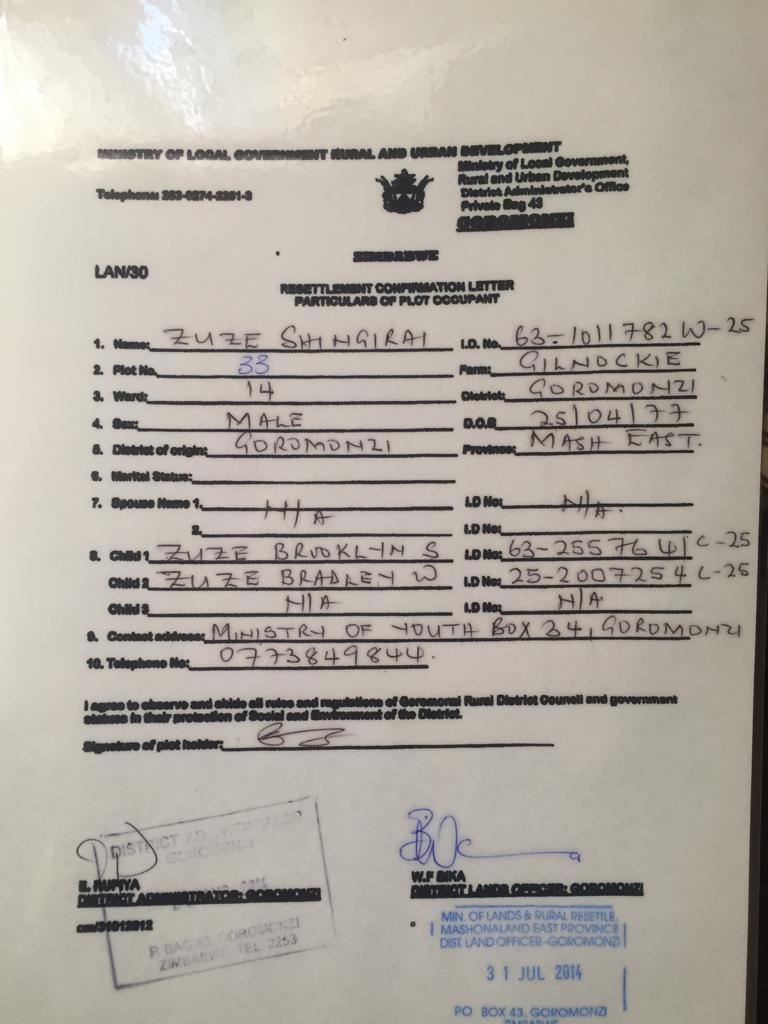 MINISTRY OF LOCAL GOVERNMENT RURAL AND URBAN DEVELOPMENT
Ministry of Local Government,
Rural and Urban Development
Telephone: 263-0274-2261-3 District Administrator's Office
Private Bag 43
GOROMONZI
ZIMBABWE
LAN/30
RESETTLEMENT CONFIRMATION LETTER
PARTICULARS OF PLOT OCCUPANT
1. Name: ZUZE SHINGIRAI I.D. No. 63-1011782 W-25
2. Plot No. 33 Farm: GILNOCKIE
3. Ward: 14 District: GOROMONZI
4. Sex: MALE D.O.B 25/04/77
5. District of origin: GOROMONZI Province: MASH EAST.
6. Marital Status:
7. Spouse Name 1. N/A I.D No: N/A.
2. I.D No:
8. Child 1 ZUZE BROOKLYN S I.D No: 63-2557641 C-25
Child 2 ZUZE BRADLEY W I.D No: 25-2007254 C-25
Child 3 N/A I.D No: N/A
9. Contact address: MINISTRY OF YOUTH BOX 34, GOROMONZI
10. Telephone No: 0773849844.
I agree to observe and abide all rules and regulations of Goromonzi Rural District Council and government
statues in their protection of Social and Environment of the District.
Signature of plot holder:
DISTRICT
GOROMONZI
E. RUPIYA W.F BIKA
DISTRICT ADMINISTRATOR: GOROMONZI DISTRICT LANDS OFFICER: GOROMONZI
cm/31012012
P. BAG 43, GOROMONZI
ZIMBABWE TEL. 2253
MIN. OF LANDS & RURAL RESETTLE.
MASHONALAND EAST PROVINCE
DIST. LAND OFFICER-GOROMONZI
31 JUL 2014
PO BOX 43, GOROMONZI
ZIMBABWE